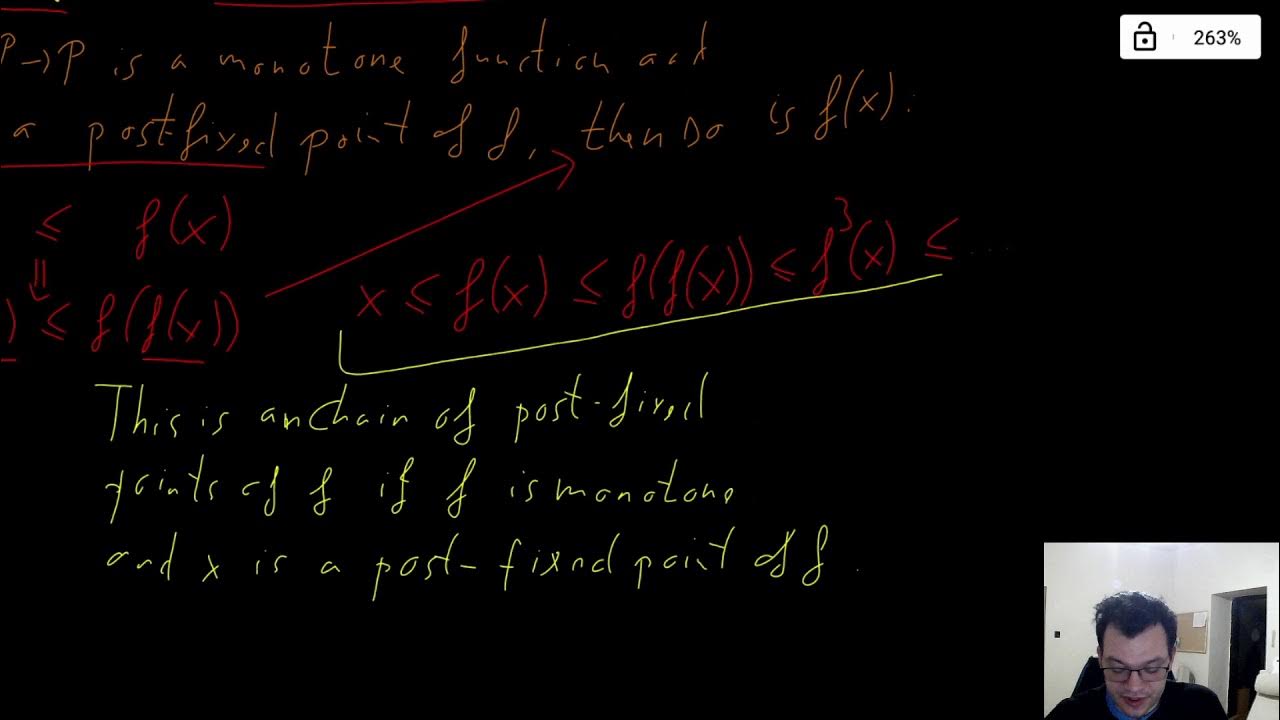 263%
P → P is a monotone function and
a post-fixed point of f, then so is f(x).
≤ f(x)
⇓
) ≤ f(f(x))
x ≤ f(x) ≤ f(f(x)) ≤ f³(x) ≤ ...
This is an chain of post-fixed
points of f if f is monotone
and x is a post-fixed point of f.